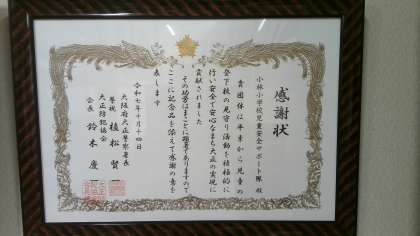 感謝状
小林小学校児童安全サポート隊 殿
貴団体は平素から児童の
登下校の見守り活動を積極的に
行い安全で安心なまち大正の実現に
貢献されました
その功労はまことに顕著でありますので
ここに記念品を添えて感謝の意を
表します
令和七年十月十四日
大阪府大正警察署長
警視 植松 賢
大正防犯協会
会長 鈴木 慶一